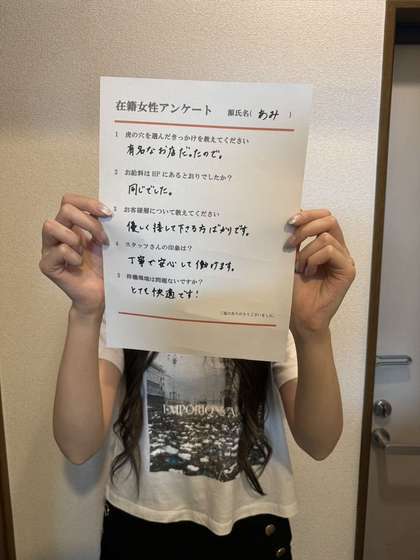 在籍女性アンケート　源氏名( あみ )
1 虎の穴を選んだきっかけを教えてください
有名なお店だったので。
2 お給料は HP にあるとおりでしたか？
同じでした。
3 お客様層について教えてください
優しく接して下さる方ばかりです。
4 スタッフさんの印象は？
丁寧で安心して働けます。
5 待機環境は問題ないですか？
とても快適です！
ご協力ありがとうございました。
EMPORIO